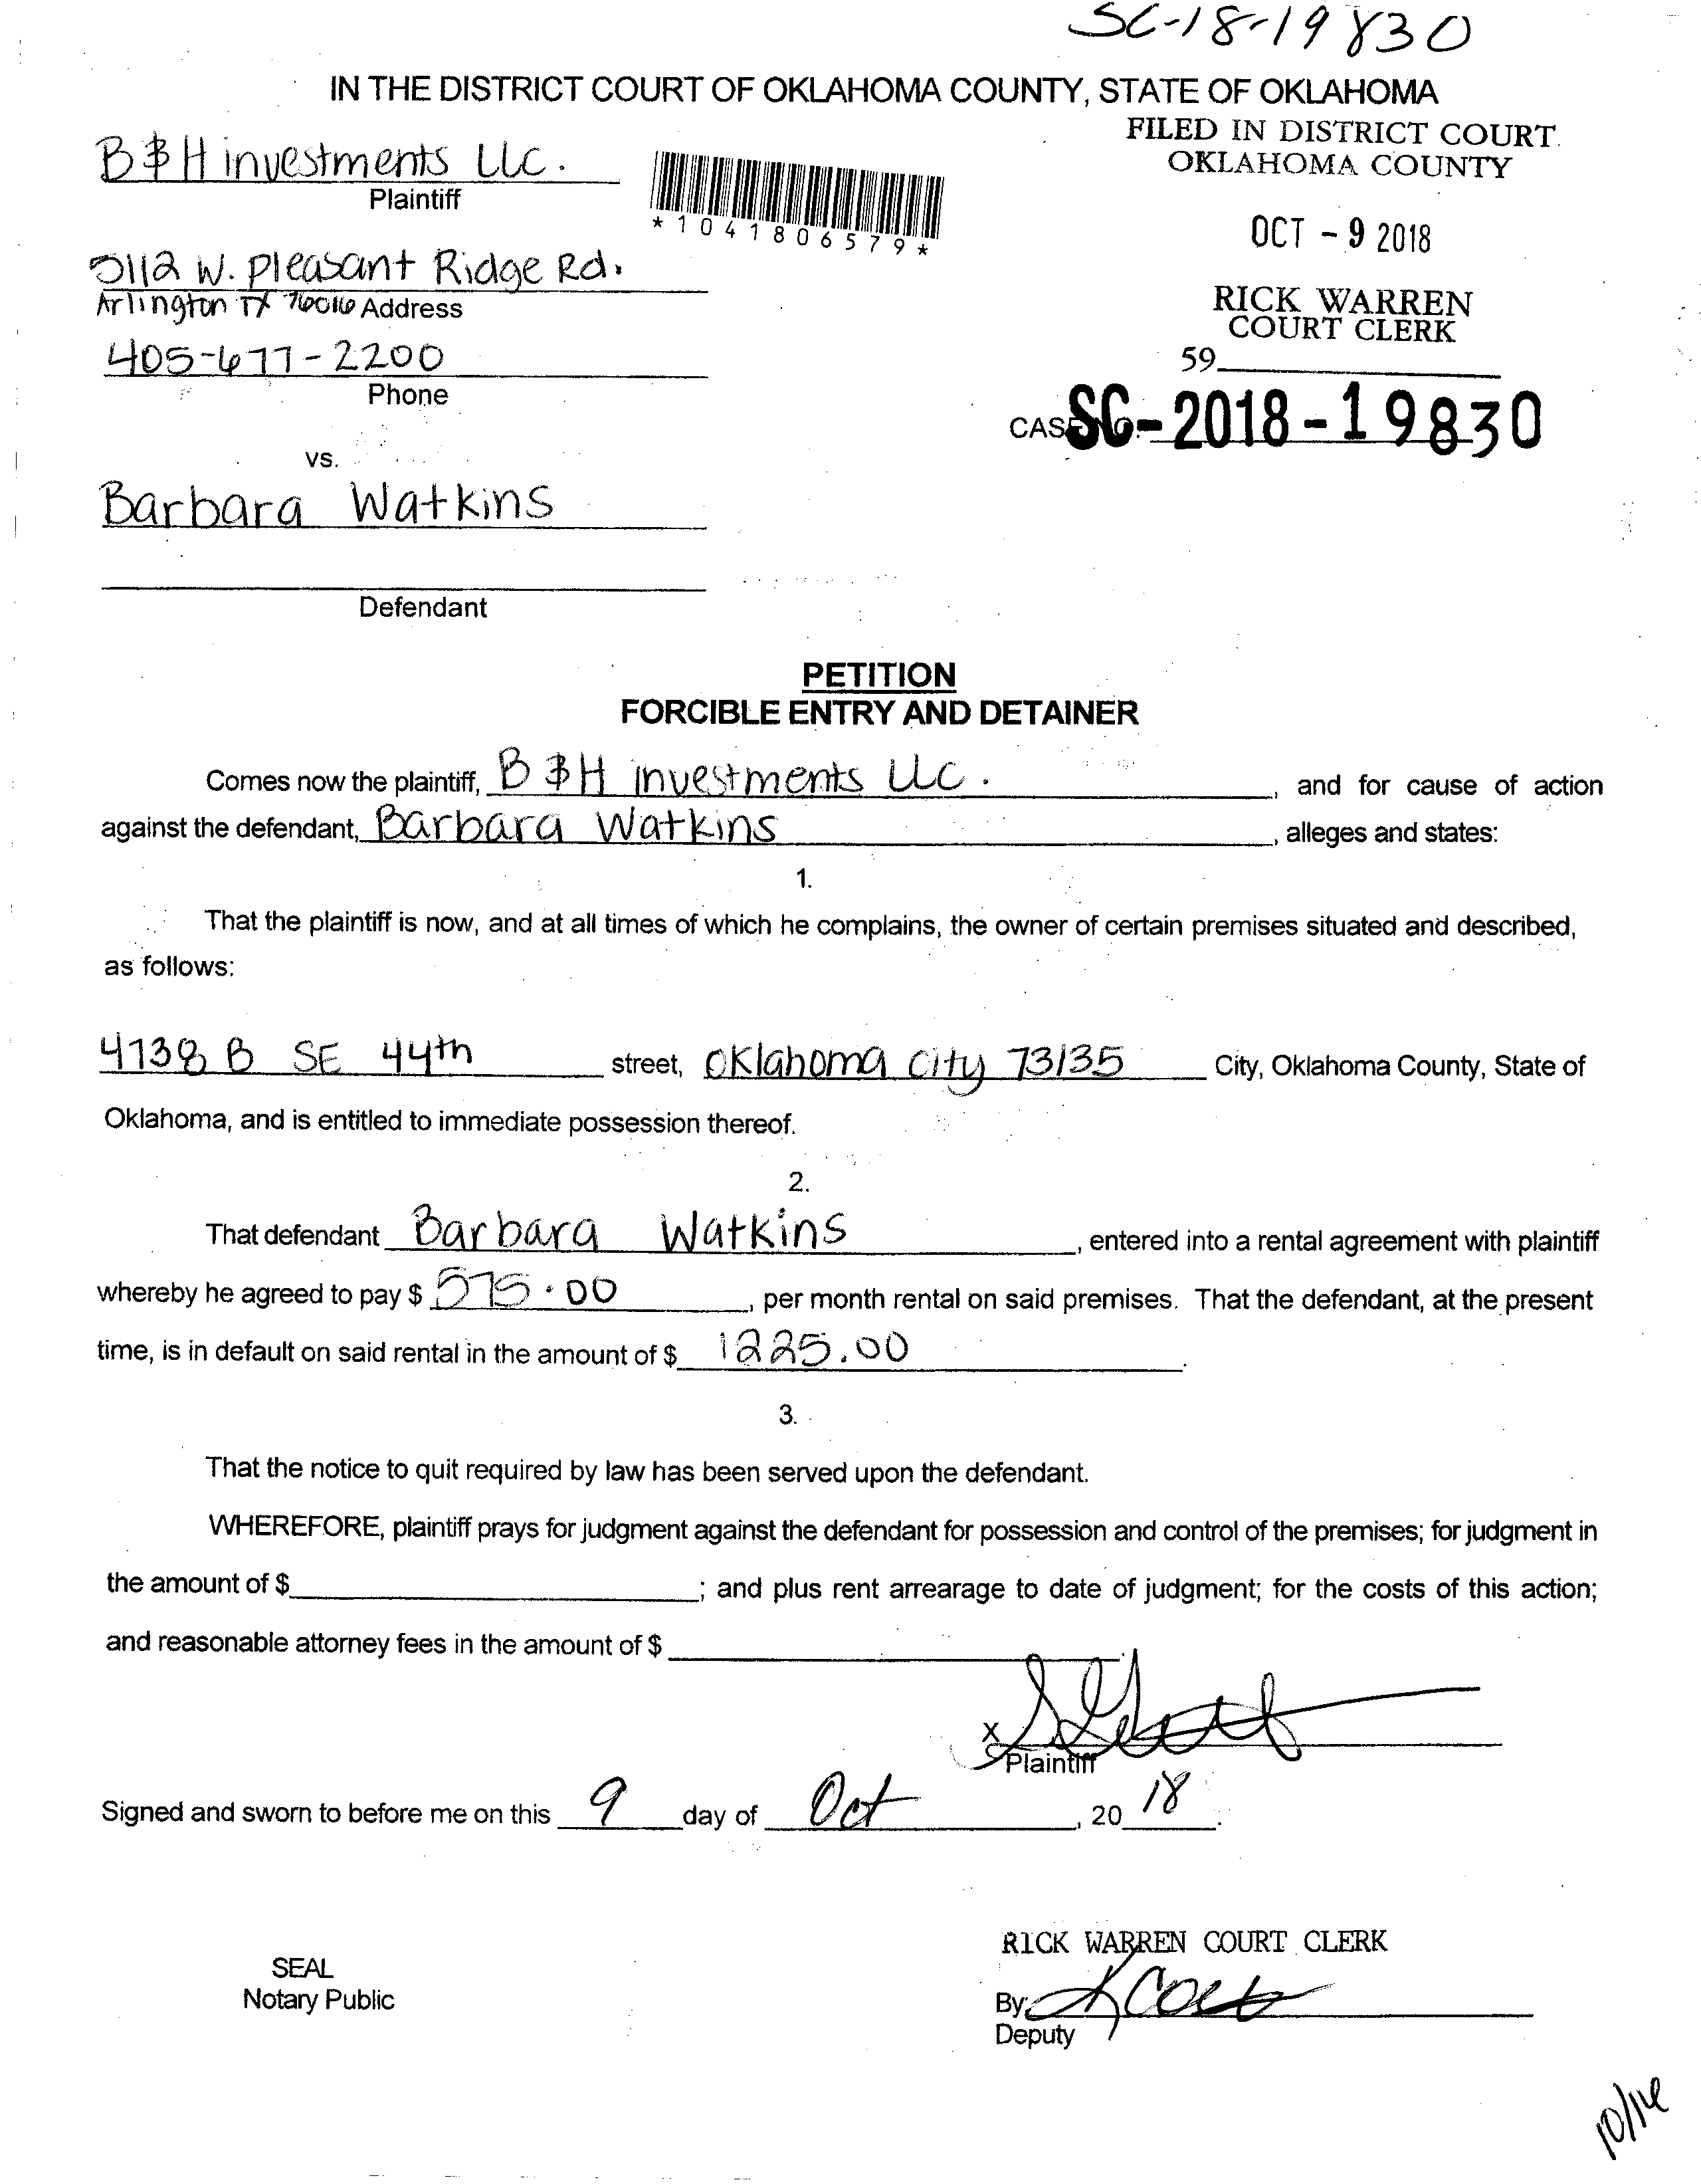 SC-18-19830
IN THE DISTRICT COURT OF OKLAHOMA COUNTY, STATE OF OKLAHOMA
FILED IN DISTRICT COURT
OKLAHOMA COUNTY
B & H investments LLC.
Plaintiff
*1041806579*
OCT - 9 2018
5112 W. Pleasant Ridge Rd.
Arlington TX 76016 Address
RICK WARREN
COURT CLERK
405-677-2200
59
Phone
CASE NO. SC-2018-19830
vs.
Barbara Watkins
Defendant
PETITION
FORCIBLE ENTRY AND DETAINER
Comes now the plaintiff, B & H investments LLC. , and for cause of action
against the defendant, Barbara Watkins , alleges and states:
1.
That the plaintiff is now, and at all times of which he complains, the owner of certain premises situated and described,
as follows:
4738 B SE 44th street, Oklahoma City 73135 City, Oklahoma County, State of
Oklahoma, and is entitled to immediate possession thereof.
2.
That defendant Barbara Watkins , entered into a rental agreement with plaintiff
whereby he agreed to pay $ 575.00 , per month rental on said premises. That the defendant, at the present
time, is in default on said rental in the amount of $ 1225.00 .
3.
That the notice to quit required by law has been served upon the defendant.
WHEREFORE, plaintiff prays for judgment against the defendant for possession and control of the premises; for judgment in
the amount of $ ; and plus rent arrearage to date of judgment; for the costs of this action;
and reasonable attorney fees in the amount of $ .
X
Plaintiff
Signed and sworn to before me on this 9 day of Oct , 20 18 .
RICK WARREN COURT CLERK
SEAL
Notary Public
By:
Deputy